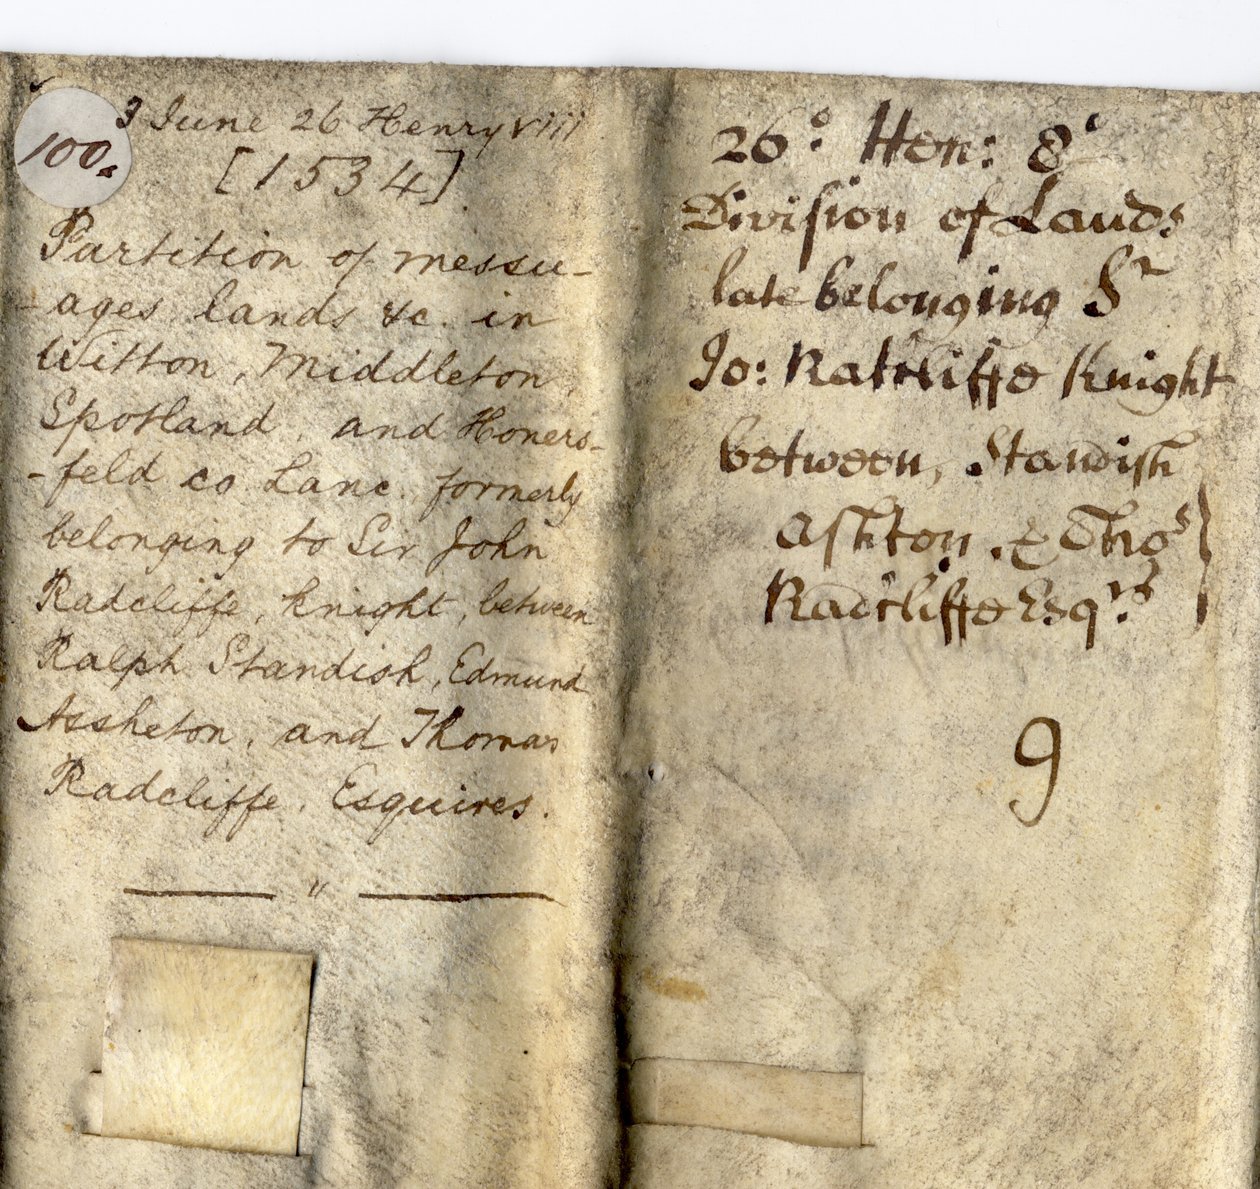 100.
3 June 26 Henry viii
[1534]
Partition of messu-
-ages lands &c. in
Witton, Middleton
Spotland, and Honers-
-feld co. Lanc. formerly
belonging to Sir John
Radcliffe, knight, between
Ralph Standish, Edmund
Assheton, and Thomas
Radcliffe, Esquires.
26°: Hen: 8
Division of Lands
late belonging Sr
Jo: Ratcliffe Knight
between, Standish
Ashton, & Tho s
Radcliffe Esqrs:
9